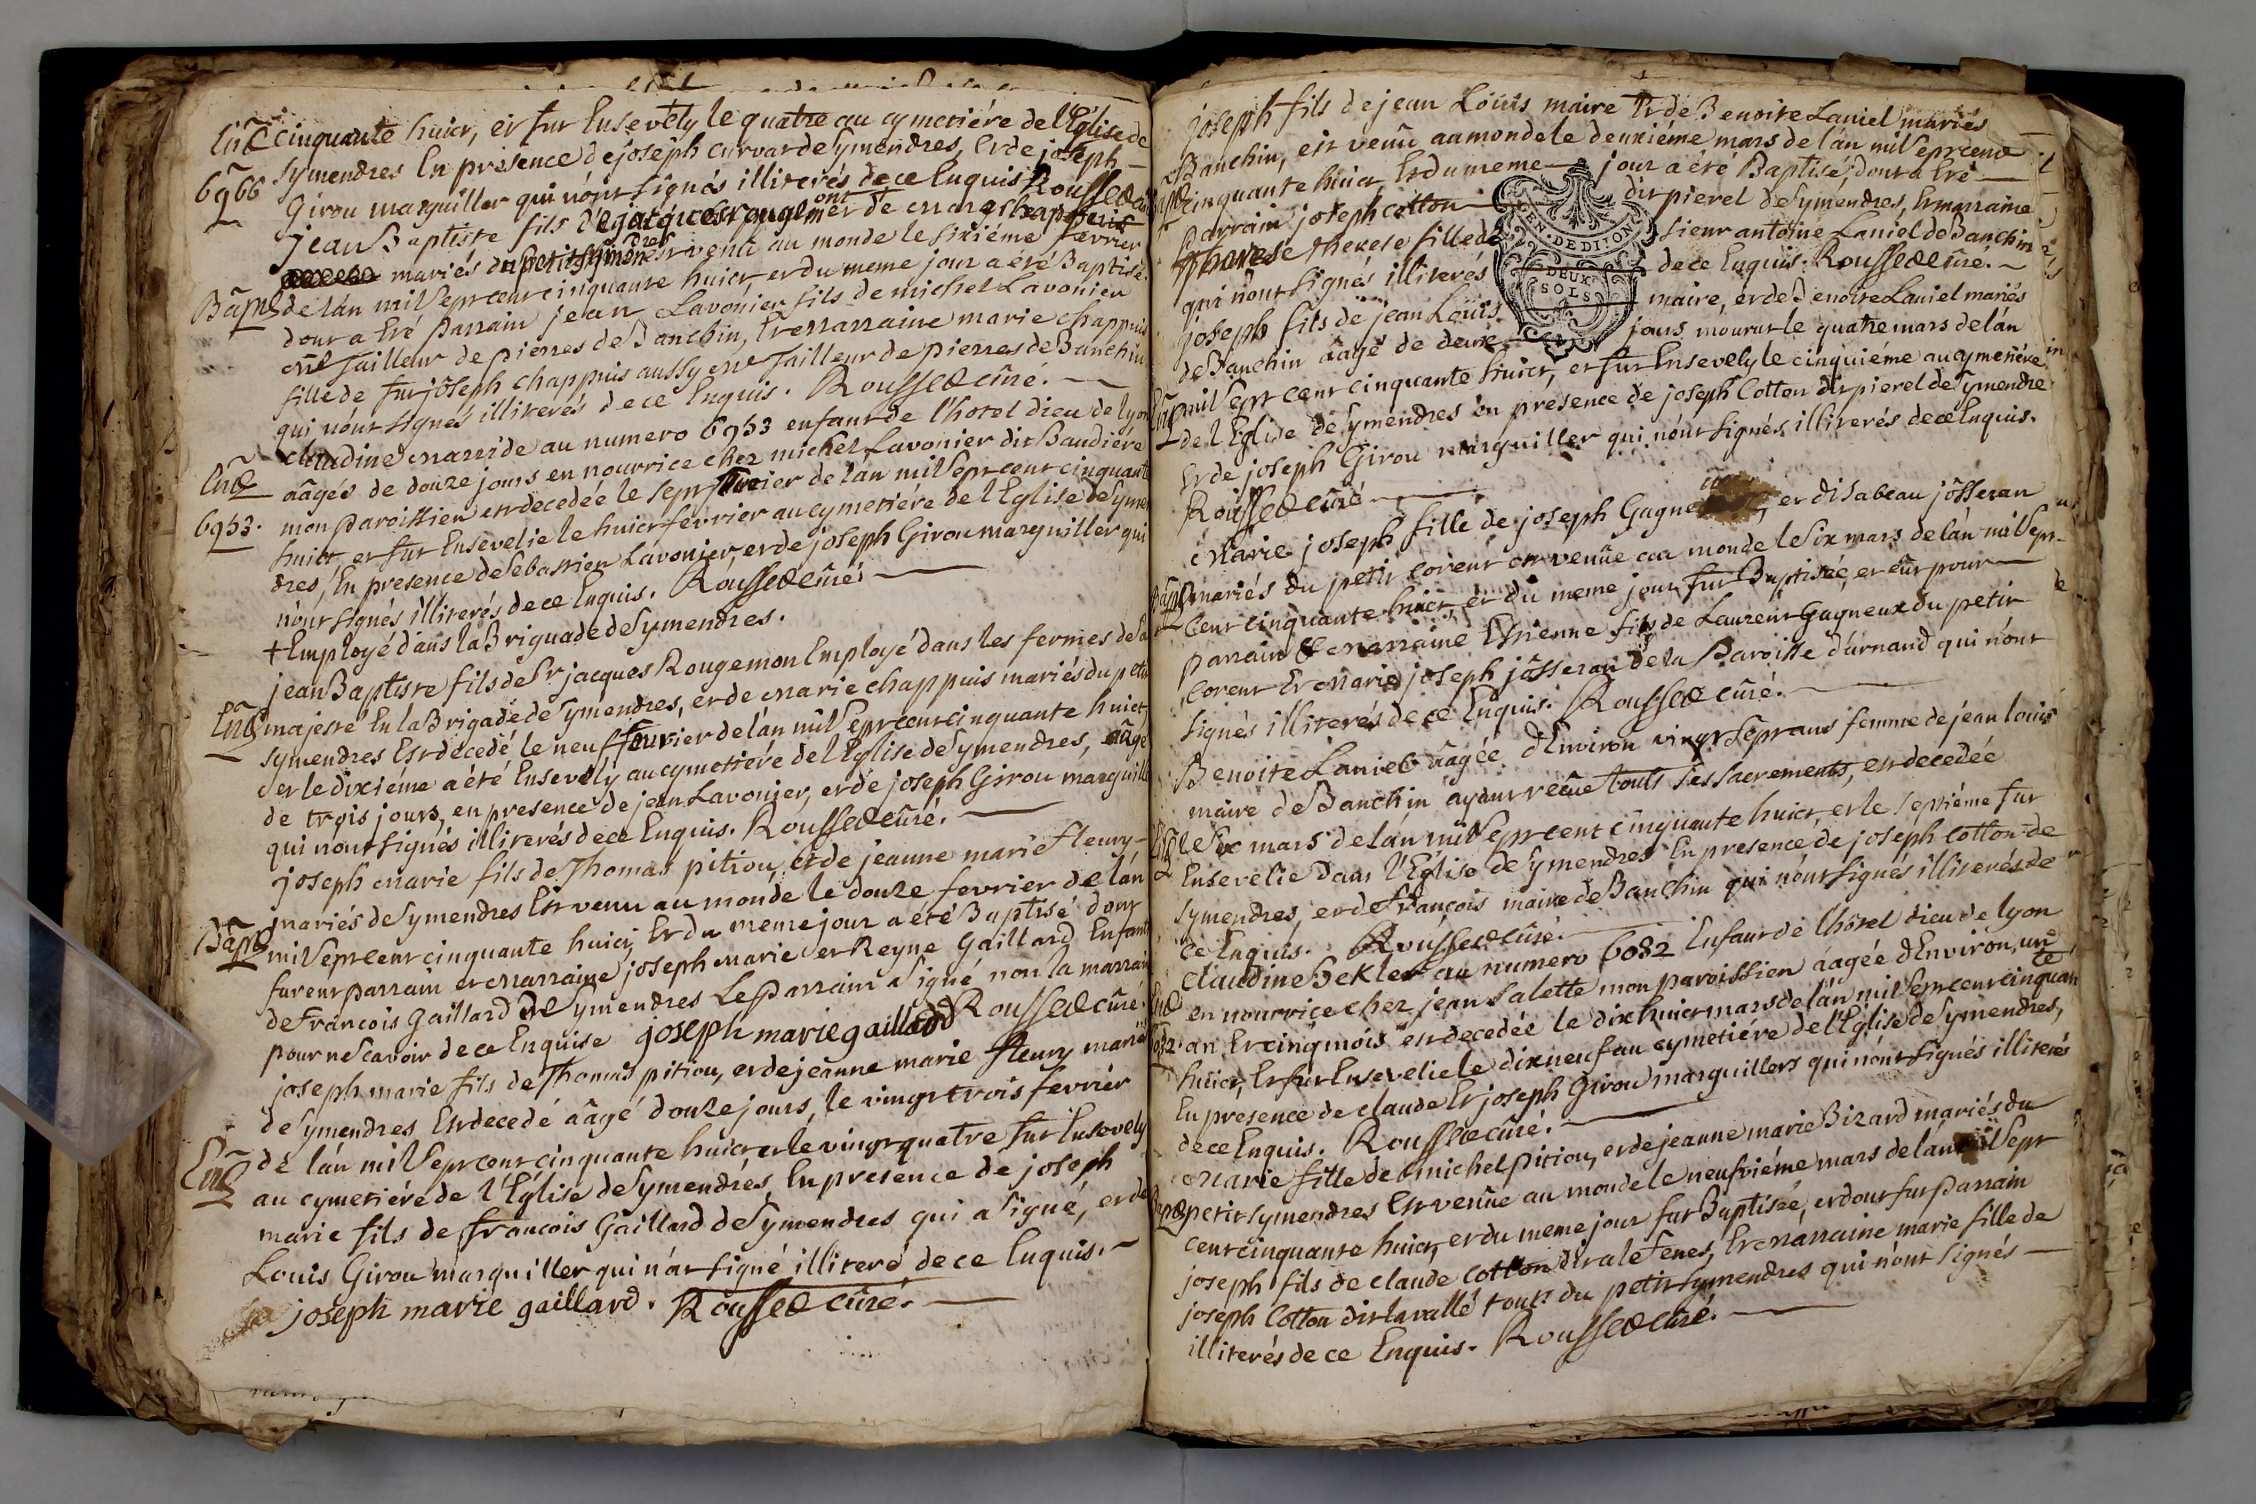 Ens cinquante huict, et fut Ensevely le quatre au cymetiére de l'Eglise de
6966 Symendres En présence de joseph curvat de Symendres, Et de joseph
Girou marguiller qui n'ont signés illiterés de ce Enquis Roussed curé
jean Baptiste fils de jacques rougemont et de marie chappuis
mariés du petit symendres est venu au monde le sixiéme fevrier
Bapts de lán mil sept cent cinquante huict et du meme jour a été Baptisé
dont a Eté parrain jean Lavonier fils de michel Lavonier
Me Tailleur de pierres de Banchin, Et marraine marie chappuis
fille de fut joseph chappuis aussy Me Tailleur de pierres de Banchin
qui n'ont signés illiterés de ce Enquis. Roussed curé.
Ens claudine au numero 6953 enfant de l'hotel dieu de lyon
aâgés de douze jours en nourrice chez michel Lavonier dit Baudiére
6953. mon paroissien est decedée le sept fevrier de lán mil sept cent cinquante
huict et fut Ensevelie le huict fevrier au cymetiere de l'Eglise de Symen
dres, En presence de Sebastien Lavonier, et de joseph Girou marguiller qui
n'ont signés illiterés de ce Enquis. Roussed curé.
+ Employé dans la Briguade de Symendres.
jean Baptiste fils de Sr jacques Rougemon Employé dans les fermes de Sa
Ens majesté En la Brigade de Symendres, et de marie chappuis mariés du petit
symendres Est decedé le neuf fevrier de lán mil sept cent cinquante huict,
et le dixiéme a été Ensevely au cymetiére de l'Eglise de Symendres, aâgé
de trois jours, en presence de jean Lavonier, et de joseph Girou marguille
qui n'ont signés illiterés de ce Enquis. Roussed curé.
joseph marie fils de Thomas pitiou, et de jeanne marie fleury
mariés de Symendres Est venu au monde le douze fevrier de lán
Bapts mil sept cent cinquante huict, Et du meme jour a été Baptisé dont
furent parrain et marraine joseph marie et Reyne Gaillard Enfants
de francois gaillard de Symendres Le parrain a signé non la marraine
pour ne Scavoir de ce Enquise joseph marie gaillard Roussed curé.
joseph marie fils de Thomas pitiou, et de jeanne marie fleury mariés
de Symendres Est decedé aâgé douze jours, le vingt trois fevrier
Ens de lán mil sept cent cinquante huict et le vingt quatre fut Ensevely
au cymetiére de l'Eglise de Symendres, En presence de joseph
marie fils de francois Gaillard de Symendres qui a signé, et de
Louis Girou marguiller qui n'at signé illiteré de ce Enquis.
joseph marie gaillard. Roussed curé.
joseph fils de jean Loüis maire Et de Benoite Laniel mariés
Banchin, est venû au monde le deuxiéme mars de lán mil sept cent
cinquante huict, Et du meme jour a été Baptisé, dont a Eté
parrain joseph cotton dit pierel de Symendres, Et marraine
therese fille de sieur antoine Laniel de Banchin
qui n'ont signés illiterés de ce Enquis. Roussed curé.
joseph fils de jean Loüis maire, et de Benoite Laniel mariés
de Banchin aâgé de deux jours mourut le quatre mars de lán
Ens mil sept cent cinquante huict, et fut Ensevely le cinquiéme au cymetiére
de l'Eglise de Symendres en présence de joseph Cotton dit pierel de Symendre
Et de joseph Girou marguiller qui n'ont signés illiterés de ce Enquis.
Roussed curé
EN. DEDITON
DEUX
SOLS
Marie joseph fille de joseph Gagneux, et disabeau jôsseran
Bapts mariés du petit corent est venüe au monde le six mars de lán mil sept
Cent cinquante huict, et du meme jour fut Baptisée, et eût pour
parrain & marraine Etienne fils de Laurent Gagneux du petit
corent Et Marie joseph jôsseran de la Paroisse d'arnand qui n'ont
signés illiterés de ce Enquis. Roussed curé.
Benoite Laniel aâgée d'Environ vingt sept ans femme de jean louis
maire de Banchin ayant recüe touts ses sacrements, est decedée
Ens le six mars de lán mil sept cent cinquante huict, et le septiéme fut
Ensevelie dans l'Eglise de Symendres En presence de joseph cotton de
symendres, et de francois maire de Banchin qui n'ont signés illiterés de
ce Enquis. Roussed curé.
claudine Bekler au numero 6032 Enfant de l'hôtel dieu de lyon
Ens en nourrice chez jean salette mon paroissien aâgée d'Environ un
032. an Et cinq mois est decedée le dix huict mars de lán mil sept cent cinquante
huict, Et fut Ensevelie le dixneuf au cymetiére de l'Eglise de Symendres,
En presence de claude Et joseph Girou marguillers qui n'ont signés illiterés
de ce Enquis. Roussed curé.
Marie fille de michel pitiou, et de jeanne marie Bizard mariés du
Bapts petit symendres Est venüe au monde le neufviéme mars de lán mil sept
cent cinquante huict, et du meme jour fut Baptisée, et dont fut parrain
joseph fils de claude cotton dit Et marraine marie fille de
joseph Cotton dit lavallé touts du petit symendres qui n'ont signés
illiterés de ce Enquis. Roussed curé.